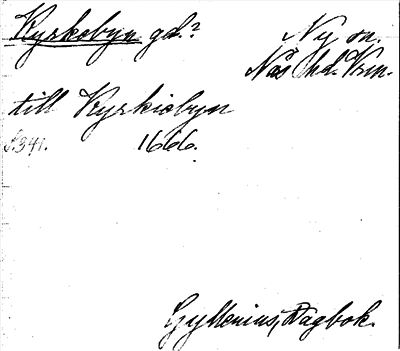 Kyrkobyn gd.? Ny sn.
Näs hd. Vrm.
till Kyrkiobyn
s. 341. 1666.
Gyllenius, Dagbok.